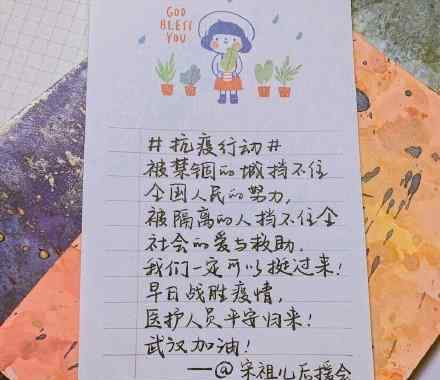 GOD
BLESS
YOU
#抗疫行动#
被禁锢的城挡不住
全国人民的努力,
被隔离的人挡不住全
社会的爱与救助.
我们一定可以挺过来!
早日战胜疫情,
医护人员平安归来!
武汉加油!
——@宋祖儿后援会